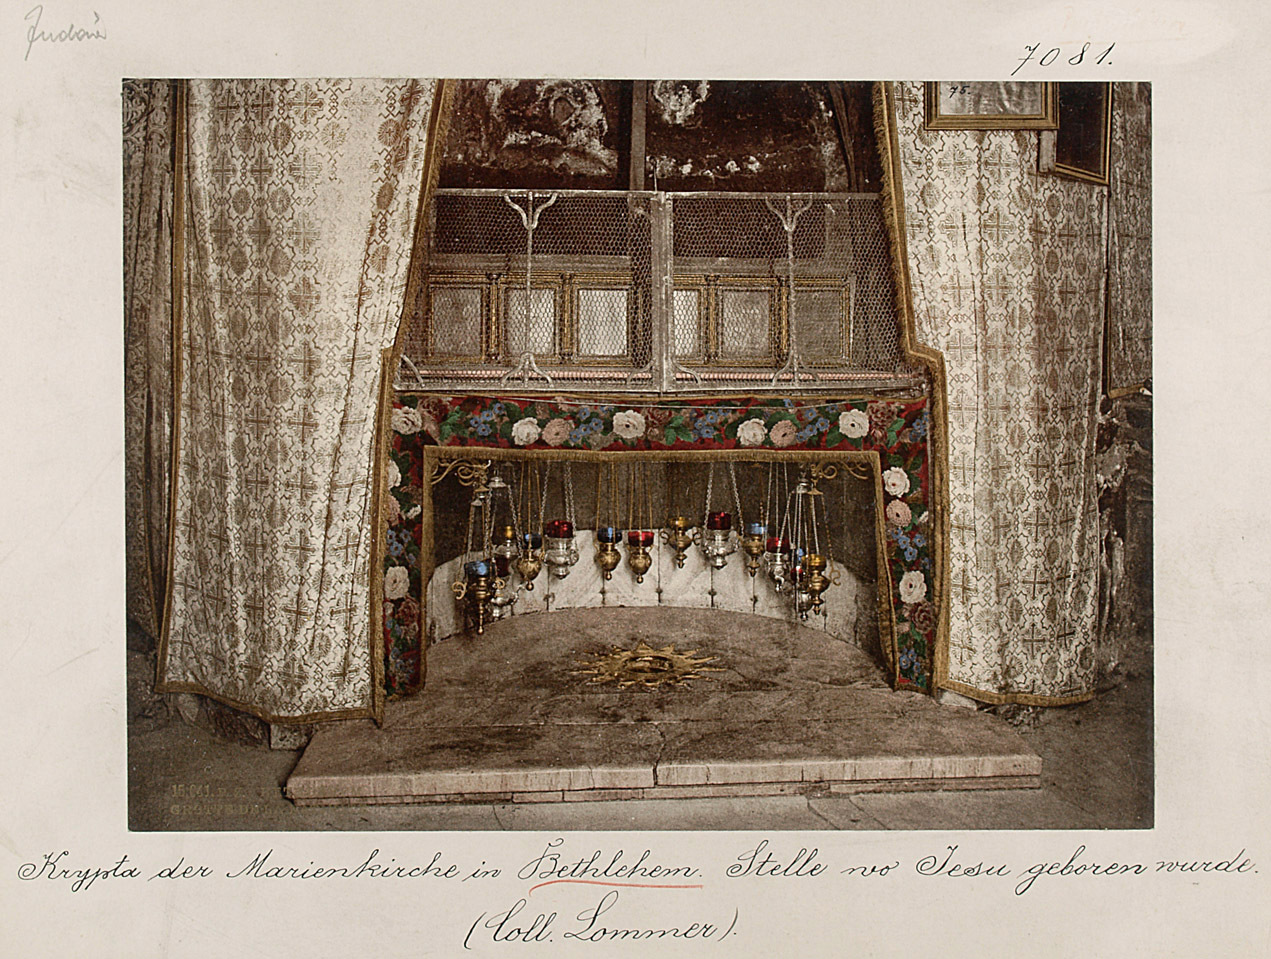 Judäa
7081.
75.
Krypta der Marienkirche in Bethlehem. Stelle wo Jesu geboren wurde.
(Coll. Lommer).